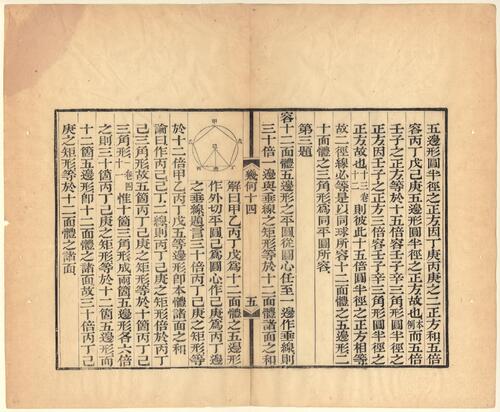 五邊形圜半徑之正方因丁庚丙庚之二正方和五倍
容丙丁戊己庚五邊形圜半徑之正方故也本例而五倍
壬子之正方等於十五倍容壬子辛三角形圜半徑之
正方因壬子之正方三倍容壬子辛三角形圜半徑之
正方故也十三卷十二則彼此十五倍圜半徑之正方相等
故二徑線必等是以同球所容十二面體之五邊形二
十面體之三角形爲同平圜所容
第三題
容十二面體五邊形之平圜從圜心任至一邊作垂線則
三十倍一邊與垂線之矩形等於十二面體諸面之和
幾何十四
五
甲
乙
戊
己
丙
庚
丁
解曰甲乙丙丁戊爲十二面體之五邊形
作外切平圜己爲圜心作己庚爲丙丁邊
之垂線題言三十倍丙丁己庚之矩形等
於十二倍甲乙丙丁戊五等邊形卽本體諸面之和
論曰作丙己己丁二線則五邊形五倍於丙丁
己三角形故五箇丙丁己庚之矩形等於十箇丙丁己
三角形一卷四一惟十箇三角形成兩箇五邊形各六倍
之則三十箇丙丁己庚之矩形等於十二箇五邊形而
十二箇五邊形卽十二面體之諸面故三十倍丙丁己
庚之矩形等於十二面體之諸面